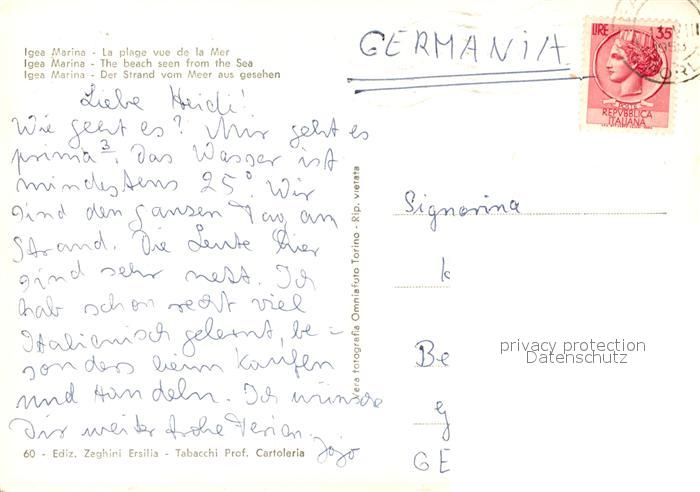 Igea Marina - La plage vue de la Mer
Igea Marina - The beach seen from the Sea
Igea Marina - Der Strand vom Meer aus gesehen
Liebe Heidi!
Wie geht es? Mir geht es
prima³. Das Wasser ist
mindestens 25° Wir
sind den ganzen Tag am
Strand. Die Leute hier
sind sehr nett. Ich
hab schon recht viel
Italienisch gelernt, be-
sonders beim Kaufen
und Handeln. Ich wünsche
Dir weiter frohe Ferien.
Jojo
60 - Ediz. Zaghini Ersilia - Tabacchi Prof. Cartoleria
Vera fotografia Omniafoto Torino - Rip. vietata
GERMANIA
LIRE 35
POSTE
REPVBBLICA
ITALIANA
Signorina
Be
GE
privacy protection
Datenschutz